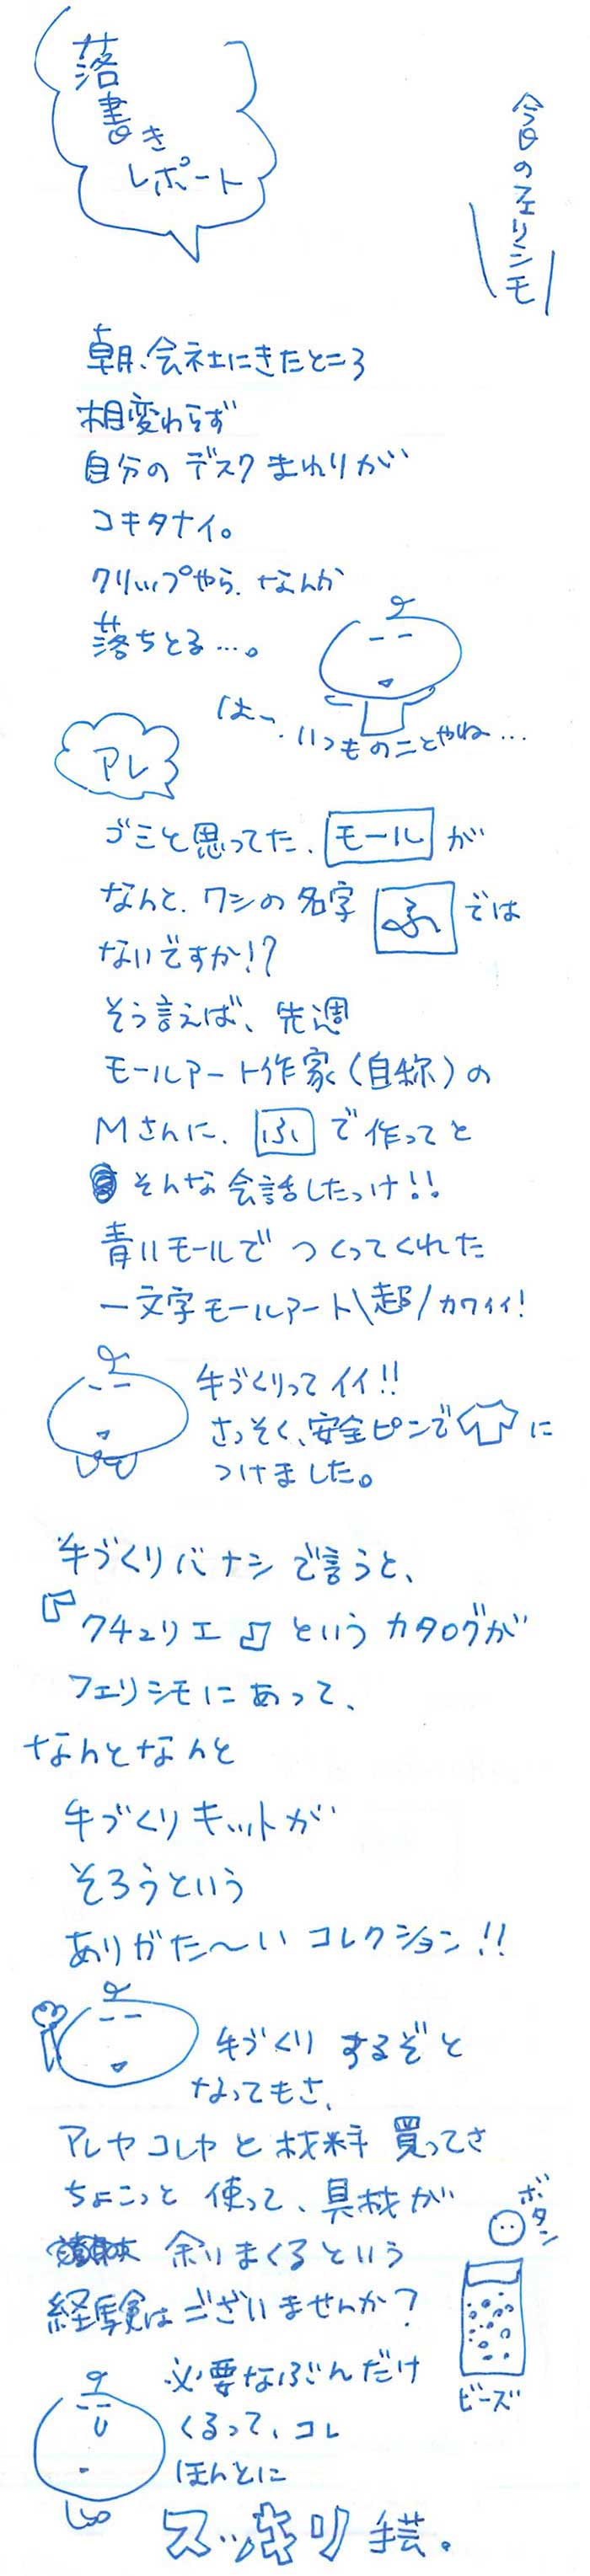 落書き
レポート
今日のフェリシモ
朝、会社にきたところ
相変わらず
自分のデスクまわりが
コキタナイ。
クリップやら、なんか
落ちとる…。
はー、いつものことやね…
アレ
ゴミと思ってた、モールが
なんと、ワシの名字 ふ では
ないですか!?
そう言えば、先週
モールアート作家(自称)の
Mさんに、ふ で作ってと
そんな会話したっけ!!
青いモールで つくってくれた
一文字モールアート\超/カワイイ!
手づくりってイイ!!
さっそく、安全ピンで に
つけました。
手づくりバナシで言うと、
『クチュリエ』というカタログが
フェリシモにあって、
なんとなんと
手づくりキットが
そろうという
ありがた〜いコレクション!!
手づくり するぞと
なってもさ、
アレヤコレヤと材料 買ってさ
ちょこっと 使って、具材が
余りまくるという
経験はございませんか?
ボタン
ビーズ
必要なぶんだけ
くるって、コレ
ほんとに
スッキリ手芸。